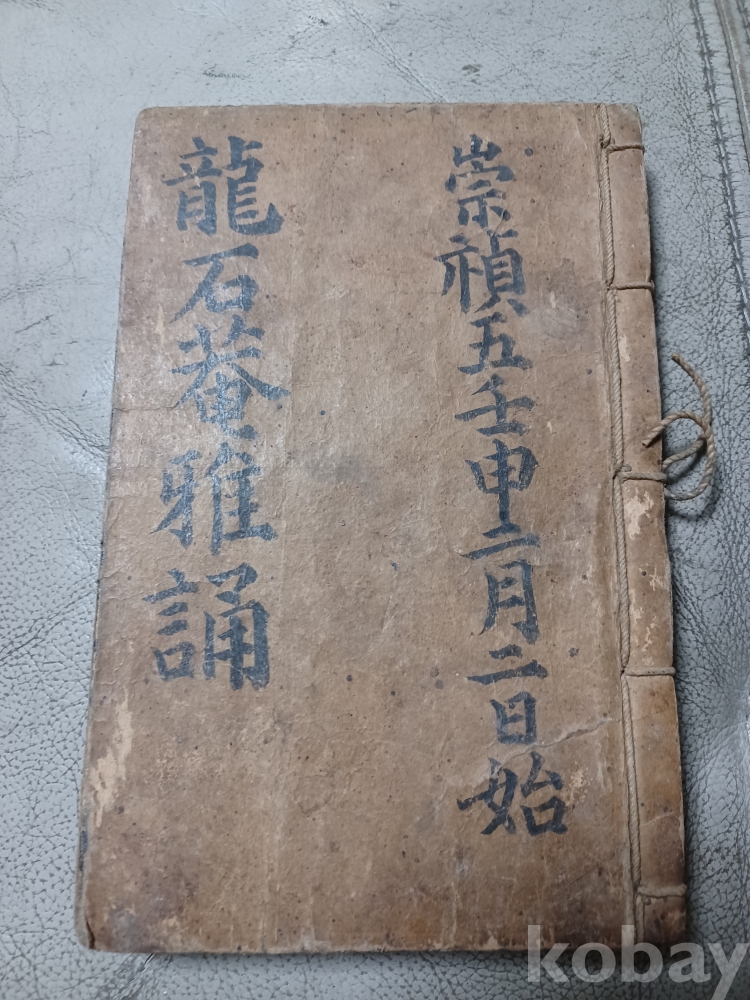 崇禎五壬申二月二日始
龍石菴雅誦
kobay